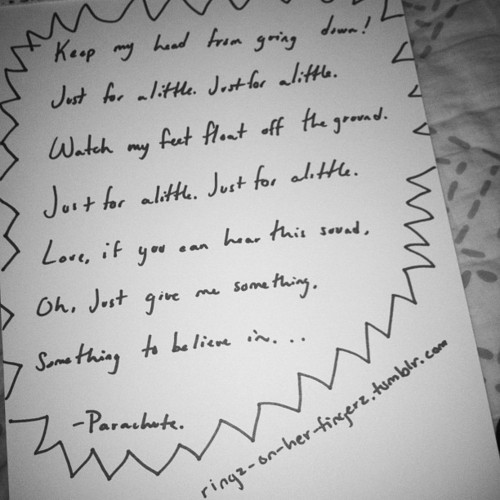 Keep my head from going down!
Just for alittle. Just for alittle.
Watch my feet float off the ground.
Just for alittle. Just for alittle.
Love, if you can hear this sound,
Oh, Just give me something.
Something to believe in...
-Parachute.
ringz-on-her-fingerz.tumblr.com